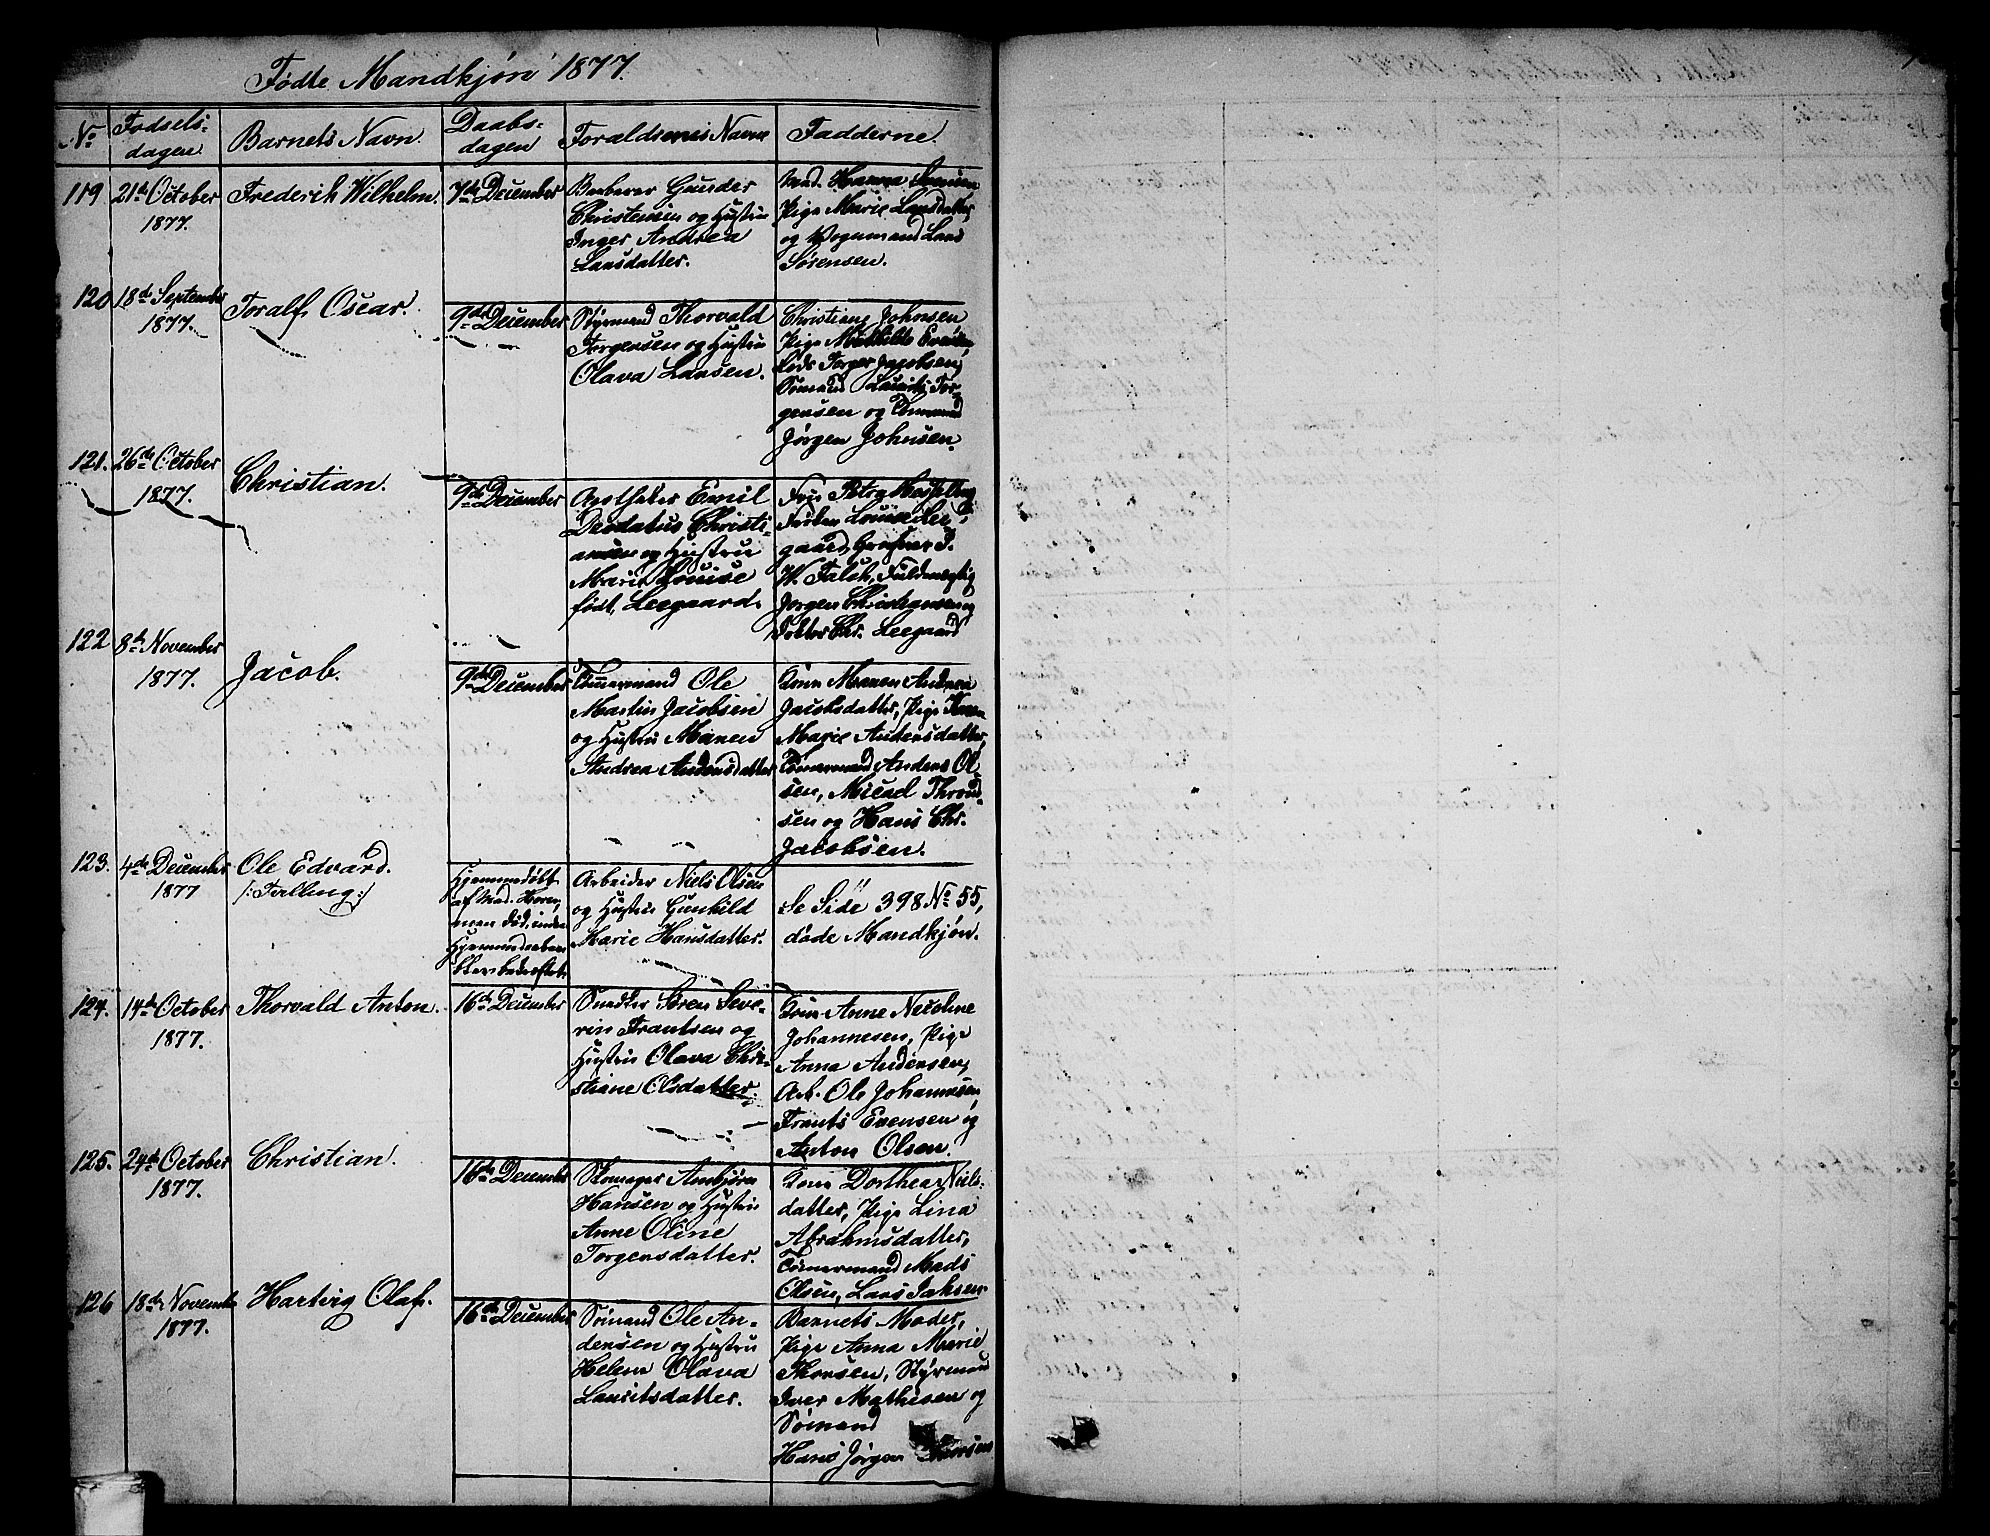 Fødte Mandkjøn 1877.
No
Fødsels-
dagen.
Barnets Navn.
Daabs-
dagen
Forældrenes Navne
Fadderne.
119
21de October
1877.
Frederik Wilhelm.
7de December
Gunder
Christensen og Hustru
Inger Andrea
Larsdatter.
Mad. Hanna
Pige Marie Larsdatter,
og Vognmand Lars
Sørensen.
120
18de September
1877.
Toralf Oscar.
9de December
Styrmand Thorvald
Torgersen og Hustru
Olava Larsen.
Christiane Johnsen
Pige Mathilde
Lods Torger Jacobsen,
Sømand Lauritz Tor-
gersen og Tømmermand
Jørgen Johnsen.
121.
26de October
1877.
Christian.
9de December
Apotheker Emil
Deodatus Christi-
ansen og Hustru
Marie Louise
født Leegaard.
Frue Petra
Frøken Louise Lee-
gaard,
W. Falck, Fuldmægtig
Jørgen Christiansen og
Doktor Chr. Leegaard
122
8de November
1877.
Jacob.
9de December
Tømmermand Ole
Martin Jacobsen
og Hustru Maren
Andrea Andersdatter
Kone Maren Andrea
Jacobsdatter, Pige
Marie Andersdatter,
Tømmermand Anders Ol-
sen, Micael Thrond-
sen og Hans Chr.
Jacobsen.
123.
4de December
1877
Ole Edvard.
/: Tvilling :/
Hjemmedøbt
af Mad. Horn,
men død, inden
Arbeider Niels Olsen
og Hustru Gunhild
Marie Hansdatter.
Se Side 398 No 55,
døde Mandkjøn.
124.
14de October
1877.
Thorvald Anton.
16de December
Snedker Søren Seve-
rin Frantsen og
Hustru Olava Chri-
stiane Olsdatter.
Kone Anne Nicoline
Johannesen, Pige
Anna Andersen,
Arb. Ole Johannesen,
Frants Evensen og
Anton Olsen.
125.
24de October
1877.
Christian.
16de December
Skomager Arnbjørn
Hansen og Hustru
Anne Oline
Torgersdatter.
Kone Dorthea Niels-
datter, Pige Lina
Abrahmsdatter,
Tømermand Mads
Olsen, Lars
126
18de Novembe
1877.
Hartvig Olaf.
16de December
Sømand Ole An-
dersen og Hustru
Helene Olava
Lauritsdatter.
Barnets Moder,
Pige Anna Marie
Thorsen, Styrmand
Iver Mathisen og
Sømand
Hans Jørgen